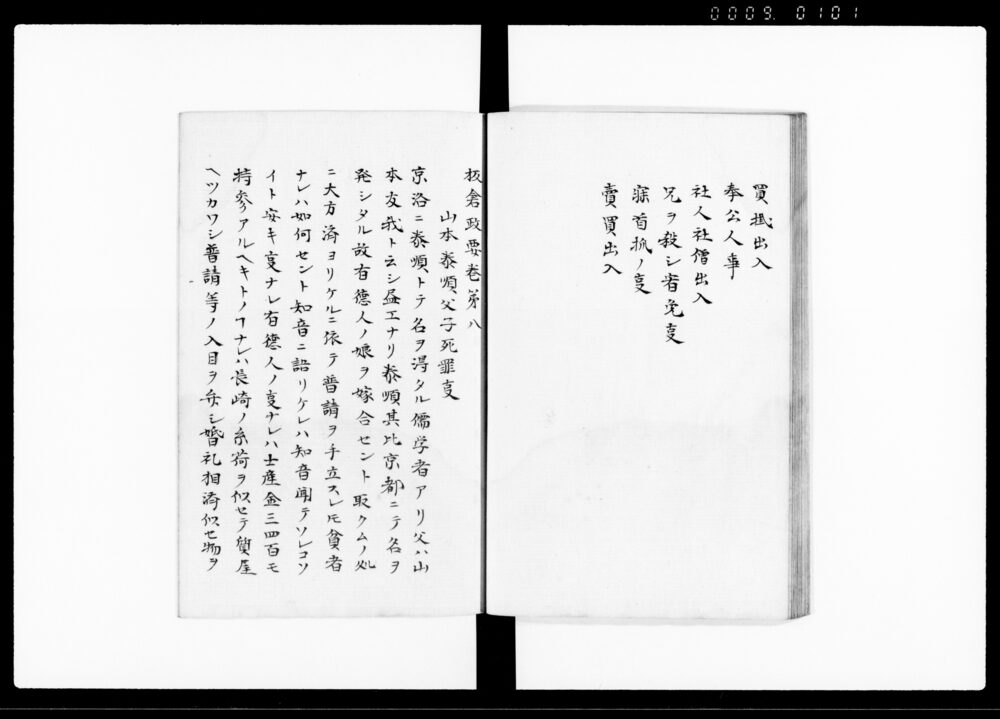 0009. 0101
買掛出入
奉公人事
社人社僧出入
兄ヲ殺シ者免㕝
寐首抓ノ㕝
賣買出入
板倉政要巻第八
山本泰順父子死罪㕝
京洛ニ泰順トテ名ヲ得タル儒学者アリ父ハ山
本友我ト云シ畫工ナリ泰順其比京都ニテ名ヲ
発シタル故有徳人ノ娘ヲ嫁合セント取クムノ処
ニ大方済ヨリケルニ依テ普請ヲ手立スレ𪜈貧者
ナレハ如何セント知音ニ語リケレハ知音聞テソレコソ
イト安キ㕝ナレ有徳人ノ㕝ナレハ土産金三四百モ
持参アルヘキトノヿナレハ長崎ノ糸荷ヲ似セテ質屋
ヘツカワシ普請等ノ入目ヲ弁シ婚礼相済似セ物ヲ